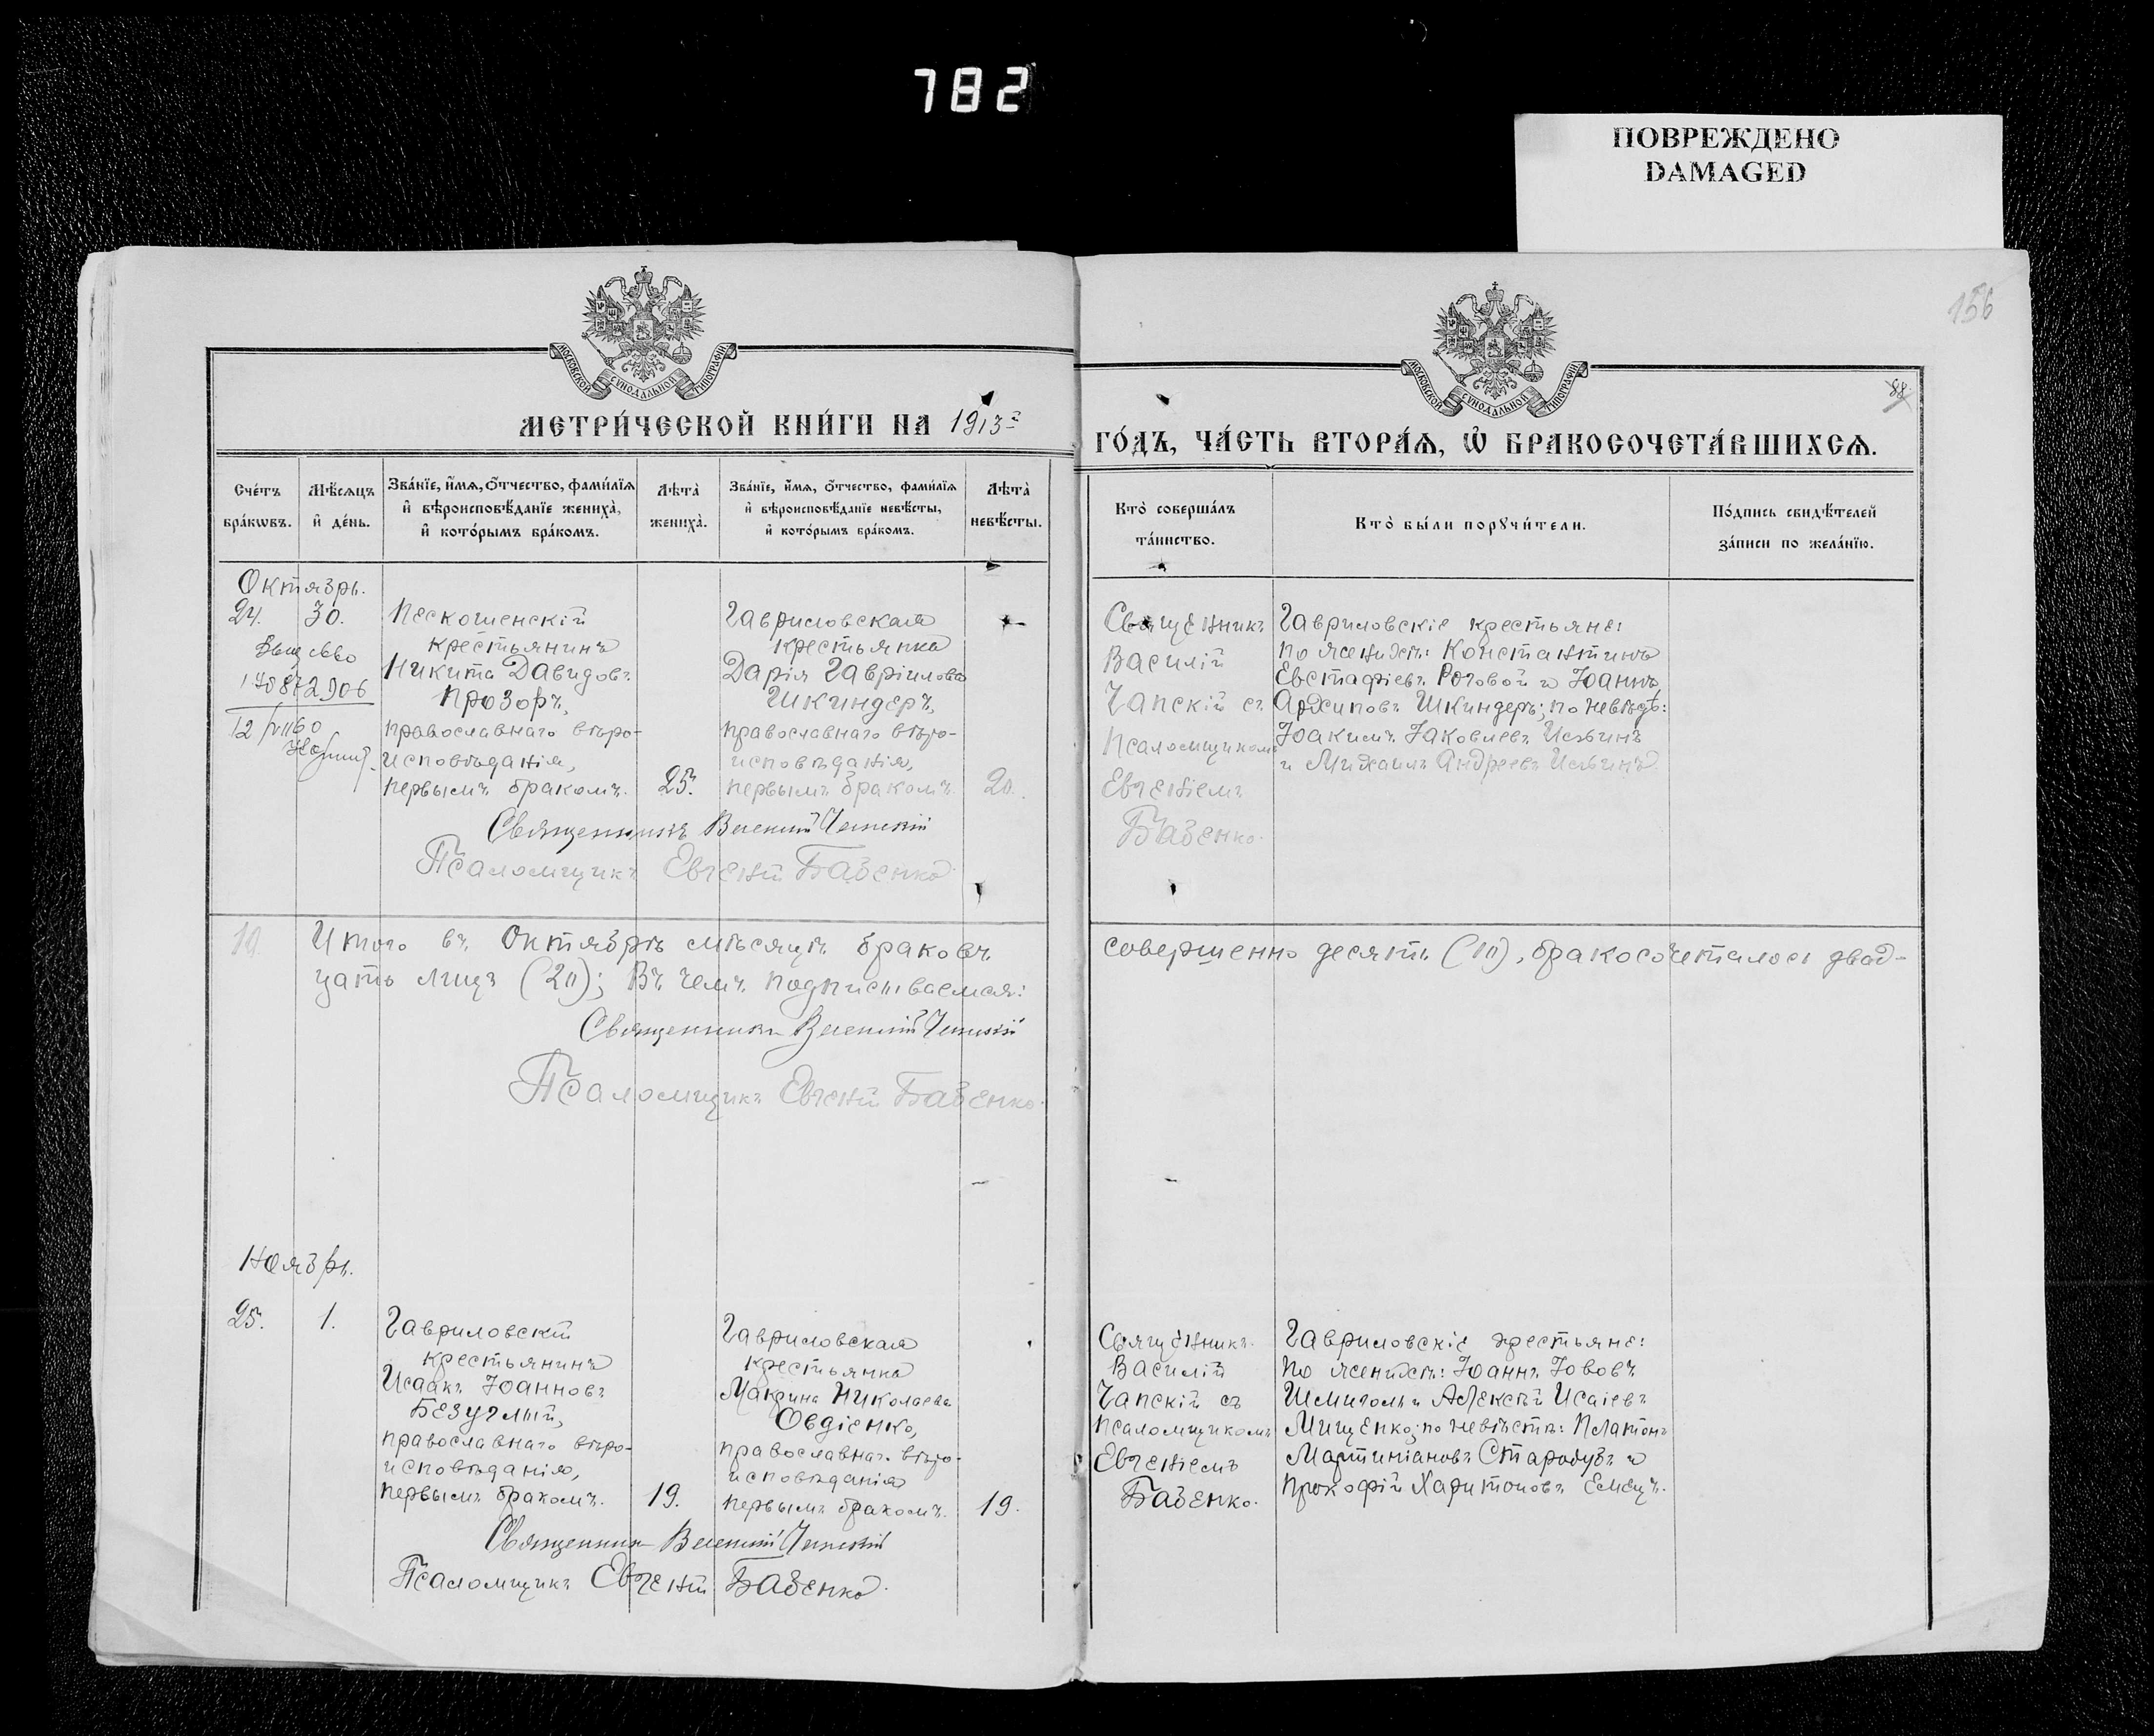 782
ПОВРЕЖДЕНО
DAMAGED
156
88
МОСКОВСКОЙ СѴНОДАЛЬНОЙ ТИПОГРАФІИ
МОСКОВСКОЙ СѴНОДАЛЬНОЙ ТИПОГРАФІИ
МЕТРИ́ЧЕСКОЙ КНИ́ГИ НА 1913 г
ГО́ДЪ, ЧА́СТЬ ВТОРА́Ѧ, Ѡ҆ БРАКОСОЧЕТА́ВШИХСѦ.
Сче́тъ бра́кѡвъ.
Мѣ́сѧцъ и҆ де́нь.
Зва́нїе, и҆́мѧ, ѻ҆́тчество, фами́лїѧ и҆ вѣроисповѣ́данїе жениха̀, и҆ кото́рымъ бра́комъ.
Лѣта̀ жениха̀.
Зва́нїе, и҆́мѧ, ѻ҆́тчество, фами́лїѧ и҆ вѣроисповѣ́данїе невѣ́сты, и҆ кото́рымъ бра́комъ.
Лѣта̀ невѣ́сты.
Кто̀ соверша́лъ та́инство.
Кто̀ бы́ли порꙋчи́тели.
По́дпись свидѣ́телей за́писи по жела́нїю.
Октябрь.
24. 30.
Пескошенскій
крестьянинъ
Никита Давидовъ
Прозоръ,
православнаго вѣро-
исповѣданія,
первымъ бракомъ. 25.
Гавриловская
крестьянка
Дарія Гавріилова
Шкиндеръ,
православнаго вѣро-
исповѣданія,
первымъ бракомъ. 20.
Священникъ
Василій
Чапскій съ
Псаломщикомъ
Евгеніемъ
Базенко.
Гавриловскіе крестьяне:
по женихѣ: Константинъ
Евстафіевъ Роговой и Іоаннъ
Архиповъ Шкиндеръ; по невѣстѣ:
Іоакимъ Іаковлевъ Ильинъ
и Михаилъ Андреевъ Ильинъ.
Священникъ Василій Чапскій
Псаломщикъ Евгеній Базенко.
10 Итого въ Октябрѣ мѣсяцѣ браковъ
совершенно десять (10), бракосочеталось двад-
цать лицъ (20); Въ чемъ подписываемся:
Священникъ Василій Чапскій
Псаломщикъ Евгеній Базенко.
Ноябрь.
25. 1.
Гавриловскій
крестьянинъ
Исаакъ Іоанновъ
Безуглый,
православнаго вѣро-
исповѣданія,
первымъ бракомъ. 19.
Гавриловская
крестьянка
Макрина Николаева
Овдіенко,
православнаго вѣро-
исповѣданія
первымъ бракомъ. 19.
Священникъ
Василій
Чапскій съ
Псаломщикомъ
Евгеніемъ
Базенко.
Гавриловскіе крестьяне:
по женихѣ: Іоаннъ Іововъ
Шмиголь и Алексѣй Исаіевъ
Мищенко; по невѣстѣ: Платонъ
Мартиніановъ Стародубъ и
Прокофій Харитоновъ Емецъ.
Священникъ Василій Чапскій
Псаломщикъ Евгеній Базенко.